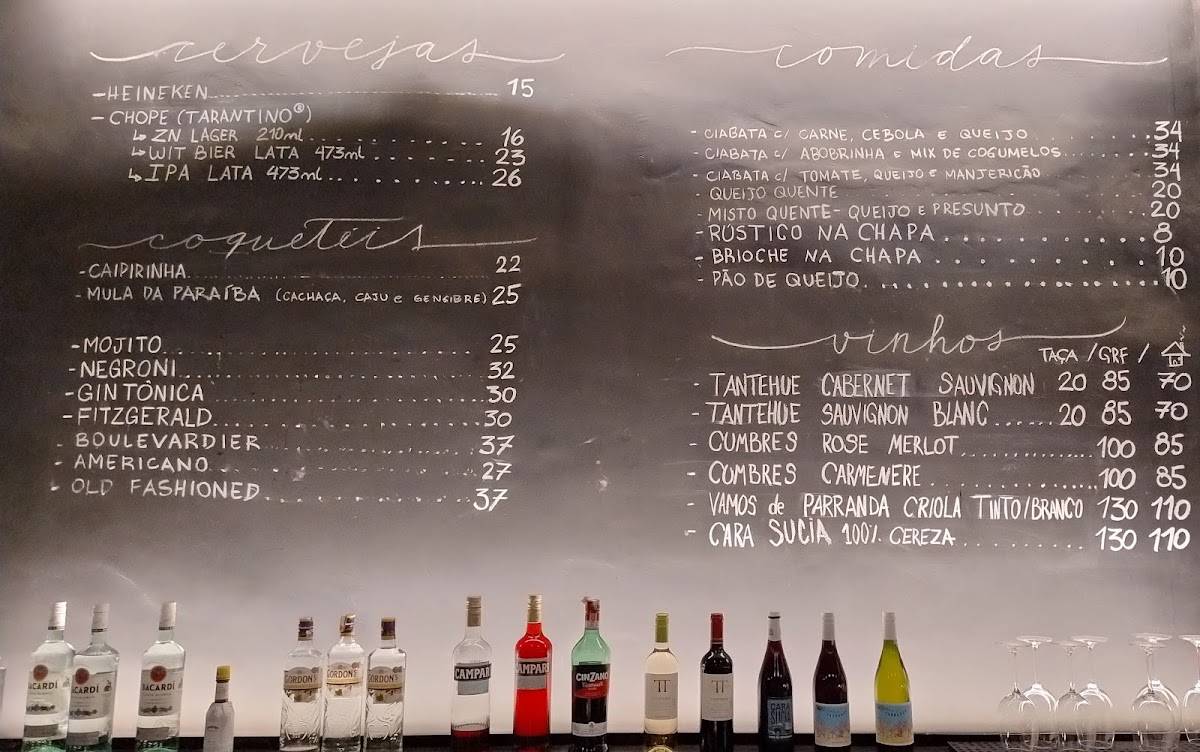 cervejas
-HEINEKEN 15
- CHOPE (TARANTINO®)
↳ ZN LAGER 210ml 16
↳ WIT BIER LATA 473ml 23
↳ IPA LATA 473ml 26
coquetéis
-CAIPIRINHA 22
-MULA DA PARAÍBA (CACHAÇA, CAJU e GENGIBRE) 25
-MOJITO 25
-NEGRONI 32
-GIN TÔNICA 30
-FITZGERALD 30
- BOULEVARDIER 37
- AMERICANO 27
- OLD FASHIONED 37
comidas
- CIABATA c/ CARNE, CEBOLA E QUEIJO 34
- CIABATA c/ ABOBRINHA e MIX DE COGUMELOS 34
- CIABATA c/ TOMATE, QUEIJO e MANJERICÃO 34
- QUEIJO QUENTE 20
- MISTO QUENTE - QUEIJO E PRESUNTO 20
- RÚSTICO NA CHAPA 8
- BRIOCHE NA CHAPA 10
- PÃO DE QUEIJO 10
vinhos
TAÇA / GRF /
- TANTEHUE CABERNET SAUVIGNON 20 85 70
- TANTEHUE SAUVIGNON BLANC 20 85 70
- CUMBRES ROSE MERLOT 100 85
- CUMBRES CARMENERE 100 85
- VAMOS de PARRANDA CRIOLA TINTO/BRANCO 130 110
- CARA SUCIA 100% CEREZA 130 110
BACARDÍ
BACARDÍ
BACARDÍ
GORDON'S
GORDON'S
GORDON'S
CAMPARI
CAMPARI
CINZANO
TT
TT
CARA
SUCIA